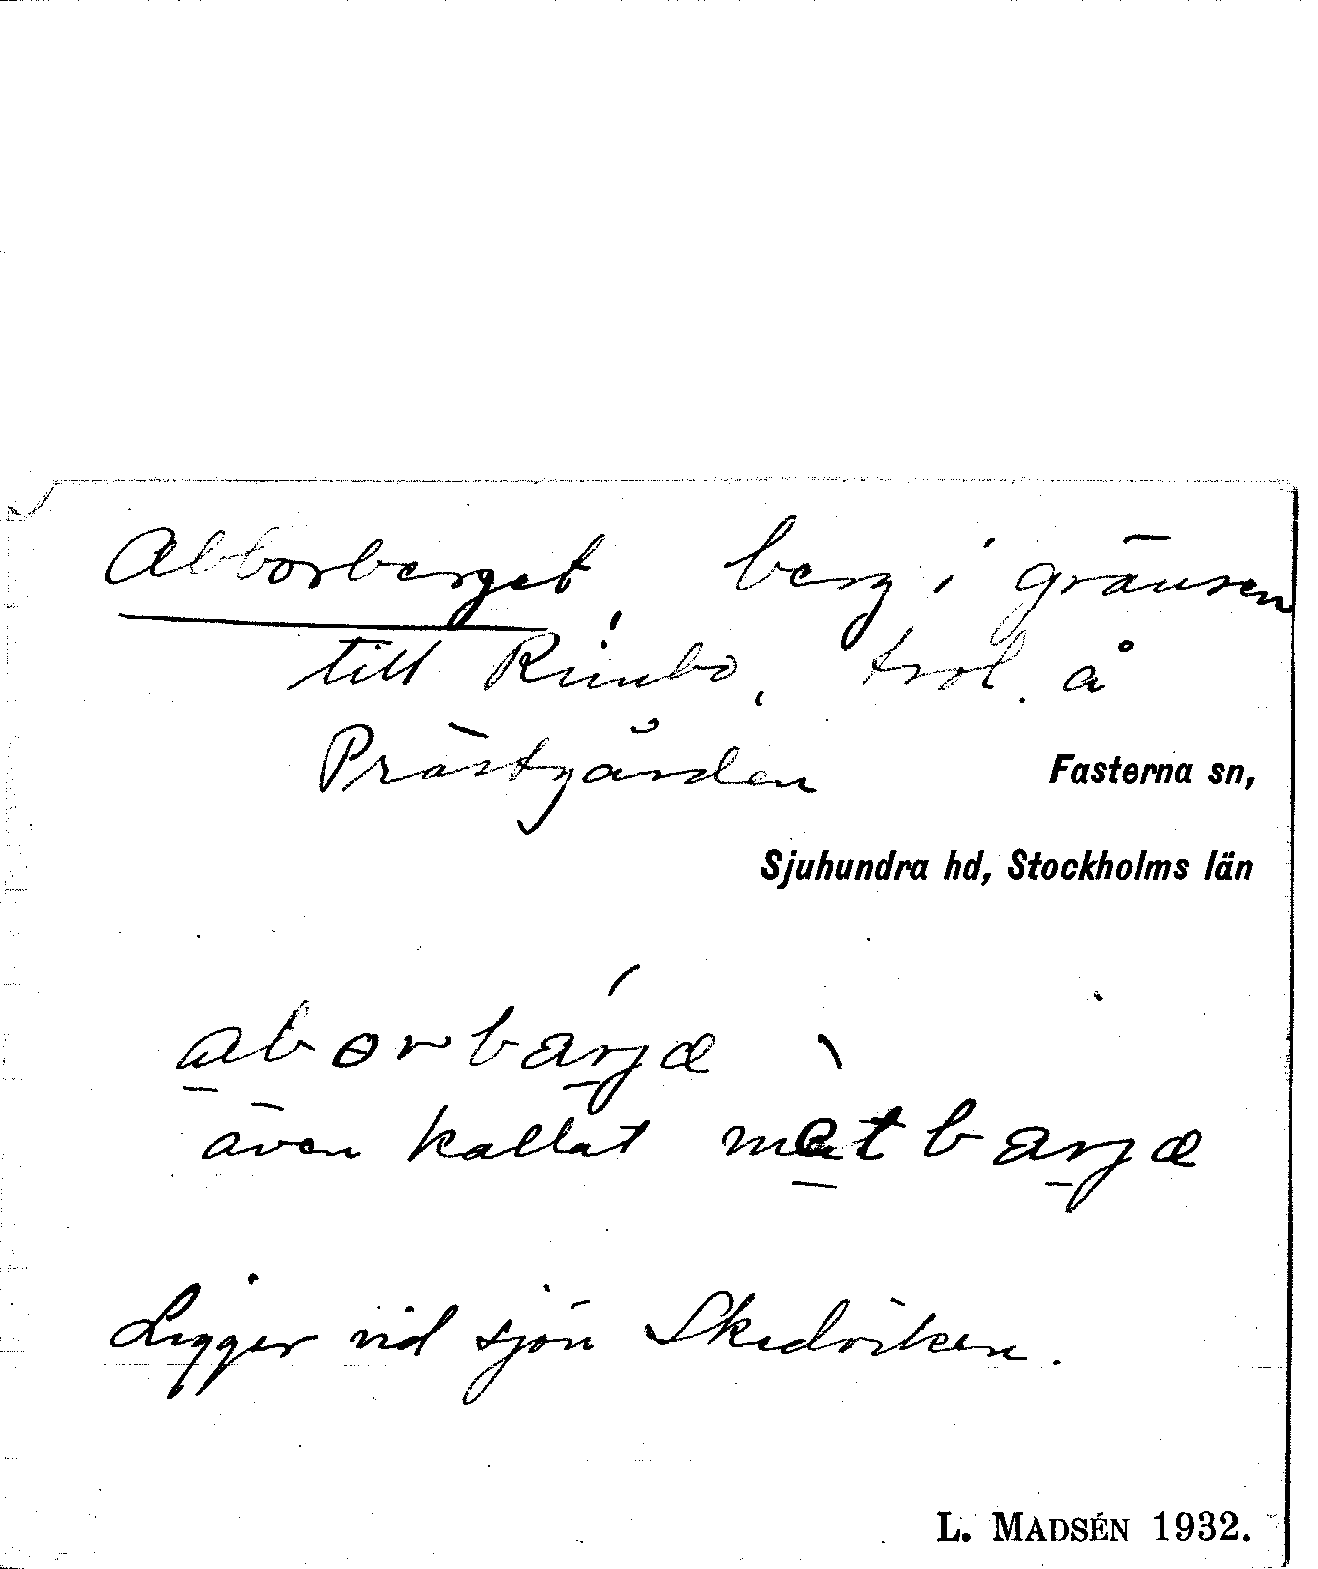 Abborberget, berg i gränsen
till Rimbo, trol. å
Prästgården
Fasterna sn,
Sjuhundra hd, Stockholms län
aborbärjæ
även kallat metbarjæ
Ligger vid sjön Skedviken.
L. MADSÉN 1932.